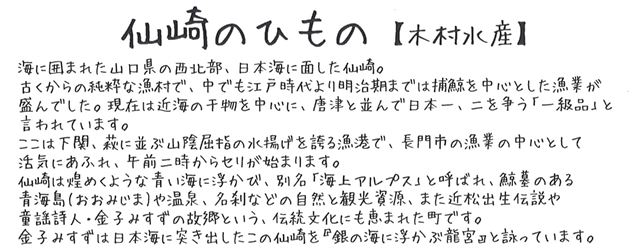 仙崎のひもの【木村水産】
海に囲まれた山口県の西北部、日本海に面した仙崎。
古くからの純粋な漁村で、中でも江戸時代より明治期までは捕鯨を中心とした漁業が
盛んでした。現在は近海の干物を中心に、唐津と並んで日本一、二を争う「一級品」と
言われています。
ここは下関、萩に並ぶ山陰屈指の水揚げを誇る漁港で、長門市の漁業の中心として
活気にあふれ、午前二時からセリが始まります。
仙崎は煌めくような青い海に浮かび、別名「海上アルプス」と呼ばれ、鯨墓のある
青海島(おおみじま)や温泉、名刹などの自然と観光資源、また近松出生伝説や
童謡詩人・金子みすずの故郷という、伝統文化にも恵まれた町です。
金子みすずは日本海に突き出したこの仙崎を『銀の海に浮かぶ龍宮』と詠っています。